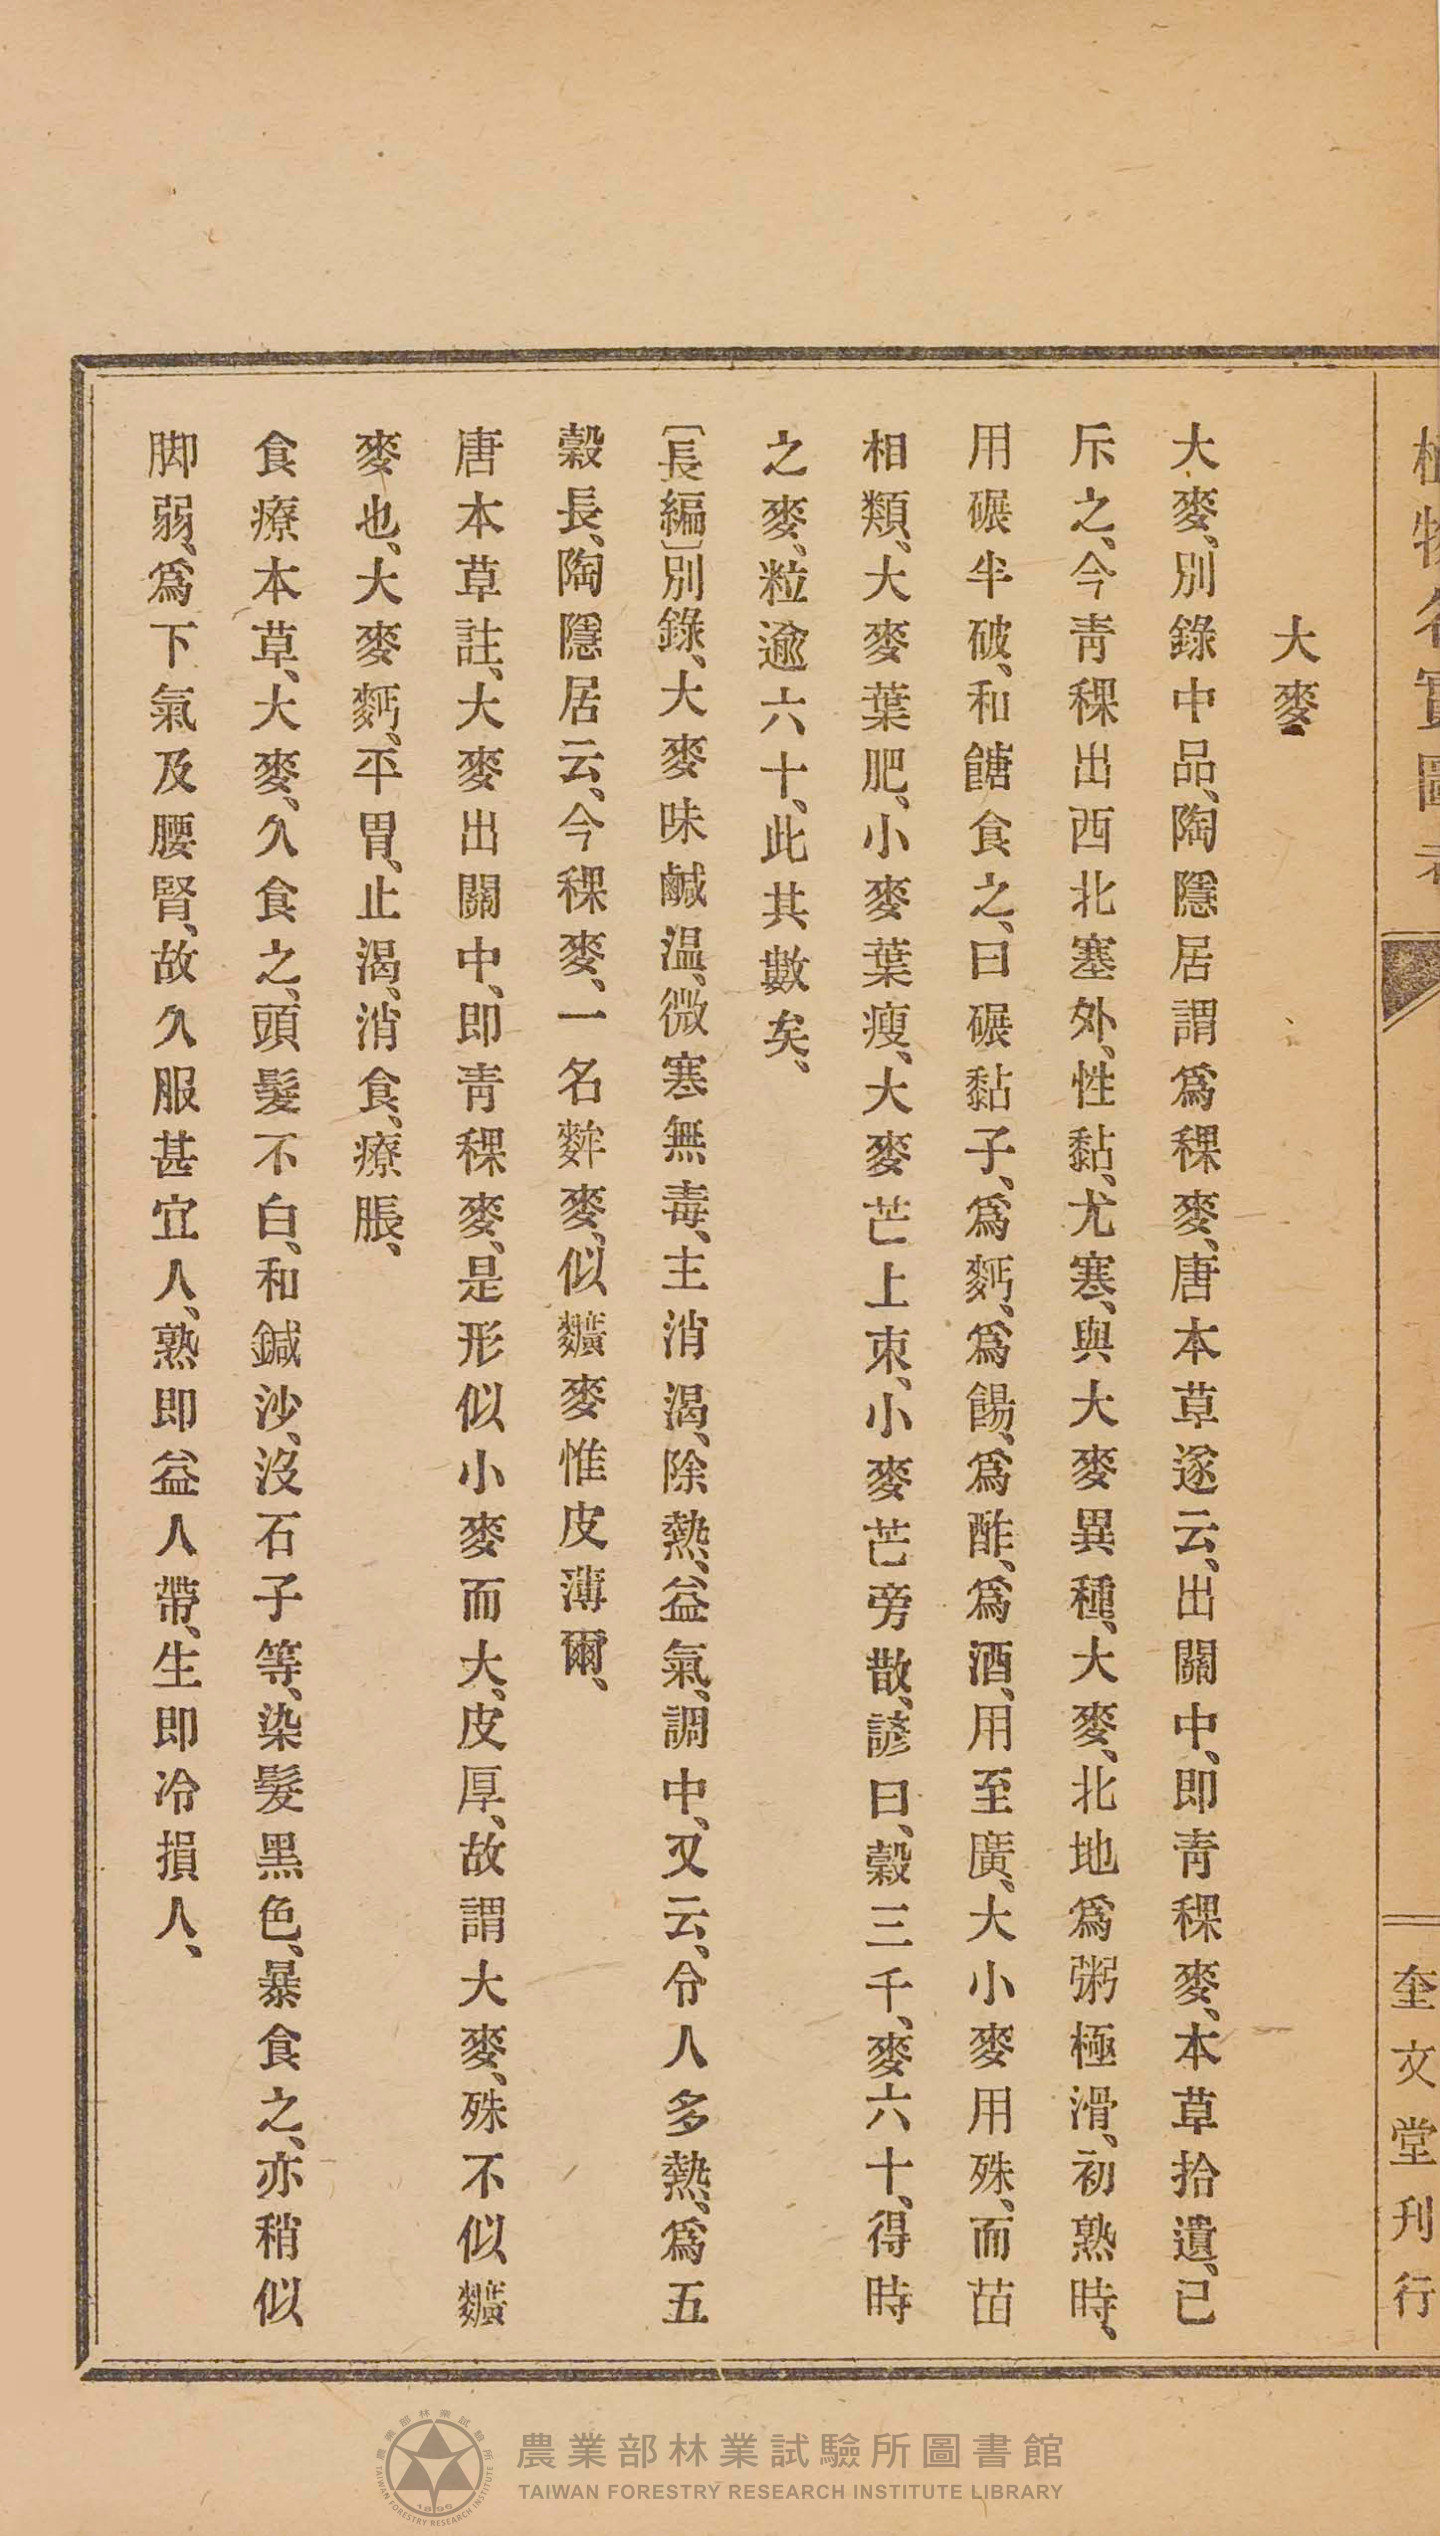 植物名實圖考
奎文堂刊行
大麥
大麥、別錄中品、陶隱居謂爲稞麥、唐本草遂云、出關中、卽靑稞麥、本草拾遺、已
斥之、今靑稞出西北塞外、性黏、尤寒、與大麥異種、大麥、北地爲粥極滑、初熟時、
用碾半破、和餹食之、曰碾黏子、爲麪、爲餳、爲酢、爲酒、用至廣、大小麥用殊、而苗
相類、大麥葉肥、小麥葉瘦、大麥芒上束、小麥芒旁散、諺曰、穀三千、麥六十、得時
之麥、粒逾六十、此其數矣、
〔長編〕別錄、大麥味鹹溫、微寒無毒、主消渴、除熱、益氣、調中、又云、令人多熱、爲五
穀長、陶隱居云、今稞麥、一名麰麥、似䵃麥惟皮薄爾、
唐本草註、大麥出關中、卽靑稞麥、是形似小麥而大、皮厚、故謂大麥、殊不似䵃
麥也、大麥麪、平胃、止渴、消食、療脹、
食療本草、大麥、久食之、頭髮不白、和鍼沙、沒石子等、染髮黑色、暴食之、亦稍似
脚弱、爲下氣及腰腎、故久服甚宜人、熟卽益人帶、生卽冷損人、
農業部林業試驗所圖書館
TAIWAN FORESTRY RESEARCH INSTITUTE LIBRARY
農業部林業試驗所
TAIWAN FORESTRY RESEARCH INSTITUTE
1896